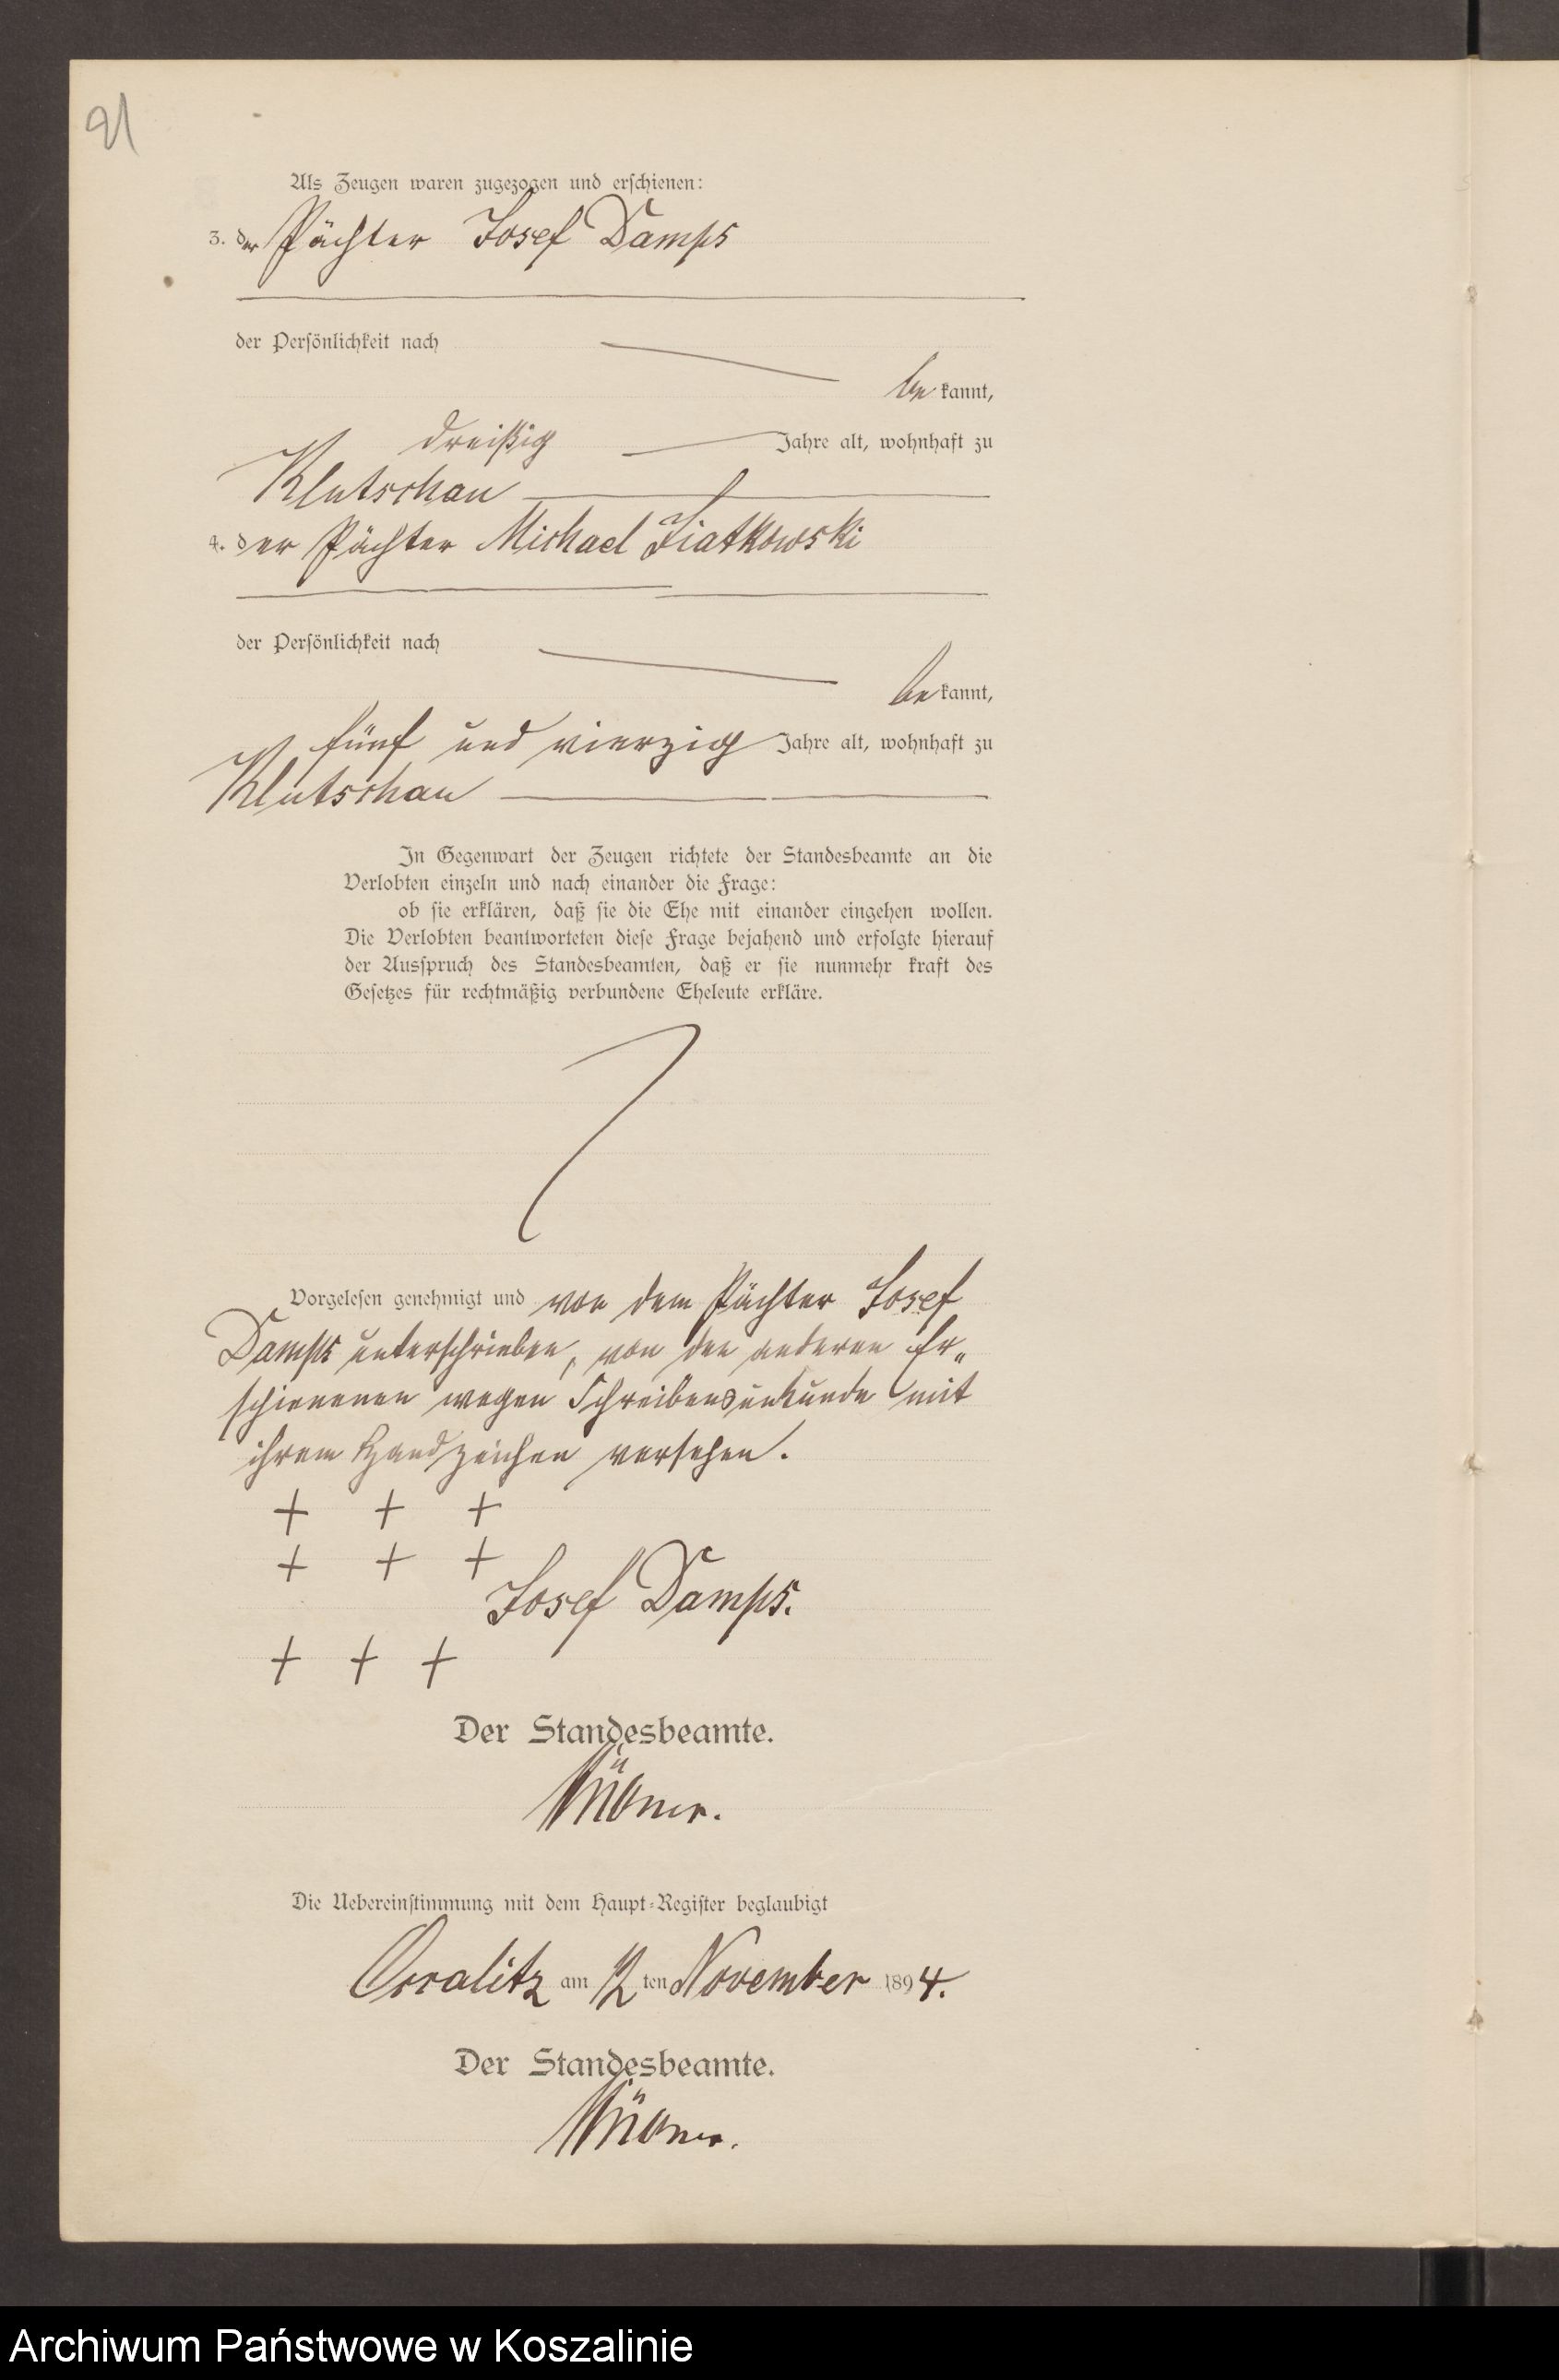 91
Als Zeugen waren zugezogen und erschienen:
3. der Pächter Josef Damps
der Persönlichkeit nach
be kannt,
dreißig Jahre alt, wohnhaft zu
Klutschau
4. der Pächter Michael Fiatkowski
der Persönlichkeit nach
be kannt,
fünf und vierzig Jahre alt, wohnhaft zu
Klutschau
In Gegenwart der Zeugen richtete der Standesbeamte an die
Verlobten einzeln und nach einander die Frage:
ob sie erklären, daß sie die Ehe mit einander eingehen wollen.
Die Verlobten beantworteten diese Frage bejahend und erfolgte hierauf
der Ausspruch des Standesbeamten, daß er sie nunmehr kraft des
Gesetzes für rechtmäßig verbundene Eheleute erkläre.
Vorgelesen genehmigt und von dem Pächter Josef
Damps unterschrieben, von den anderen Er„
schienenen wegen Schreibensunkunde mit
ihrem Handzeichen versehen.
+ + +
+ + +
Josef Damps.
+ + +
Der Standesbeamte.
Die Uebereinstimmung mit dem Haupt-Register beglaubigt
Occalitz am 12 ten November 1894.
Der Standesbeamte.
Archiwum Państwowe w Koszalinie